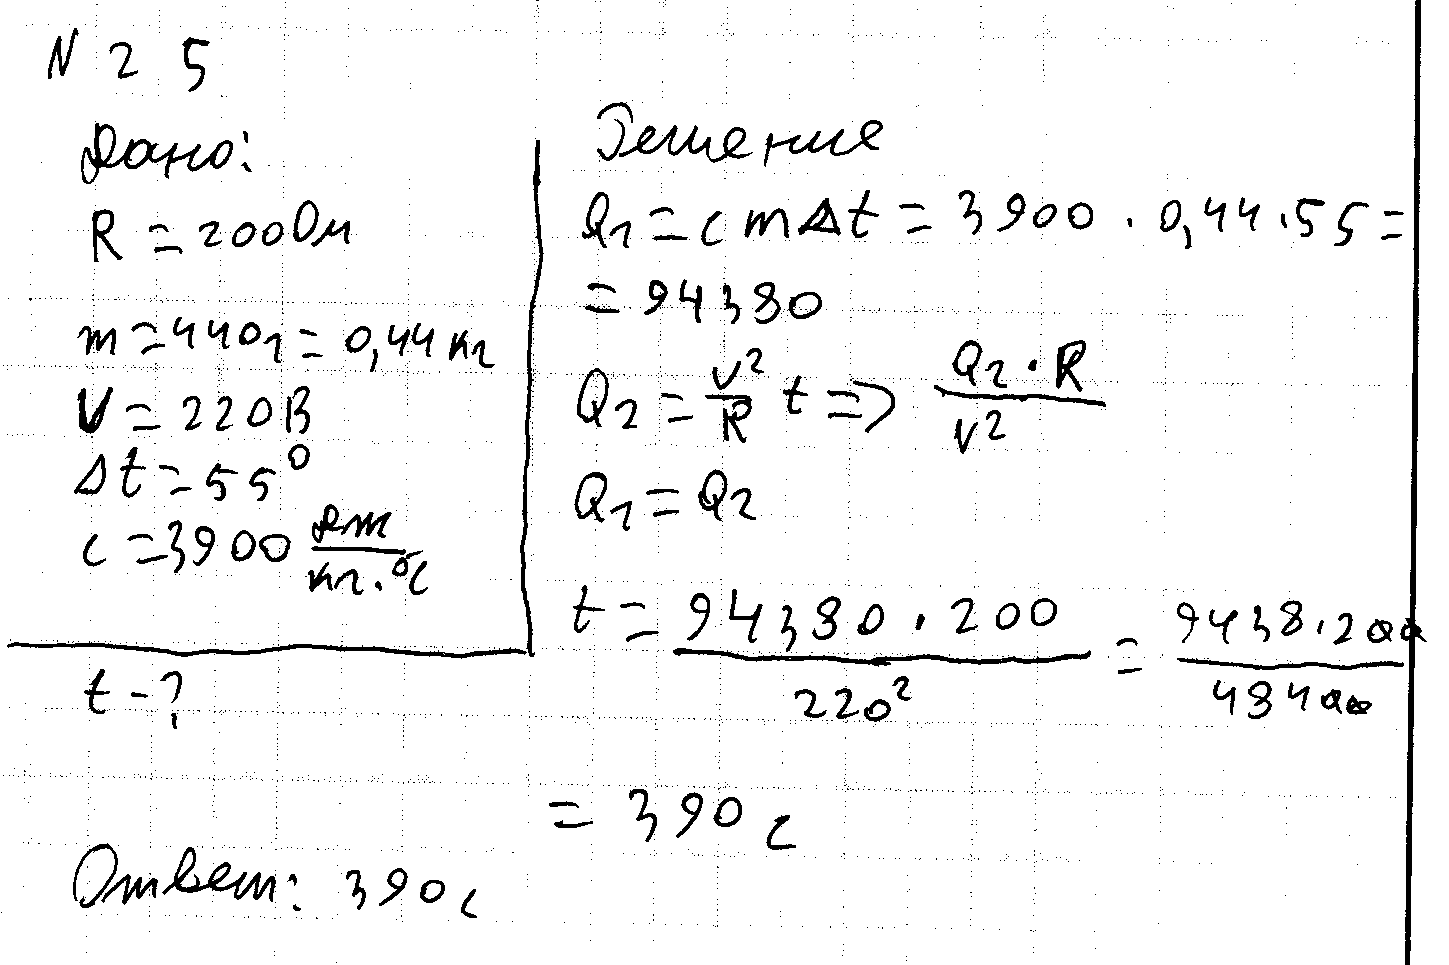 N 25
Дано:
R = 200 Ом
m = 440г = 0,44 кг
V = 220В
Δt = 55°
c = 3900 Дж/кг·°C
t - ?
Решение
Q1 = c m Δt = 3900 · 0,44 · 55 =
= 94380
Q2 = V²/R t => Q2·R/V²
Q1 = Q2
t = 94380 · 200/220² = 9438 · 200/48400
= 390 с
Ответ: 390 с